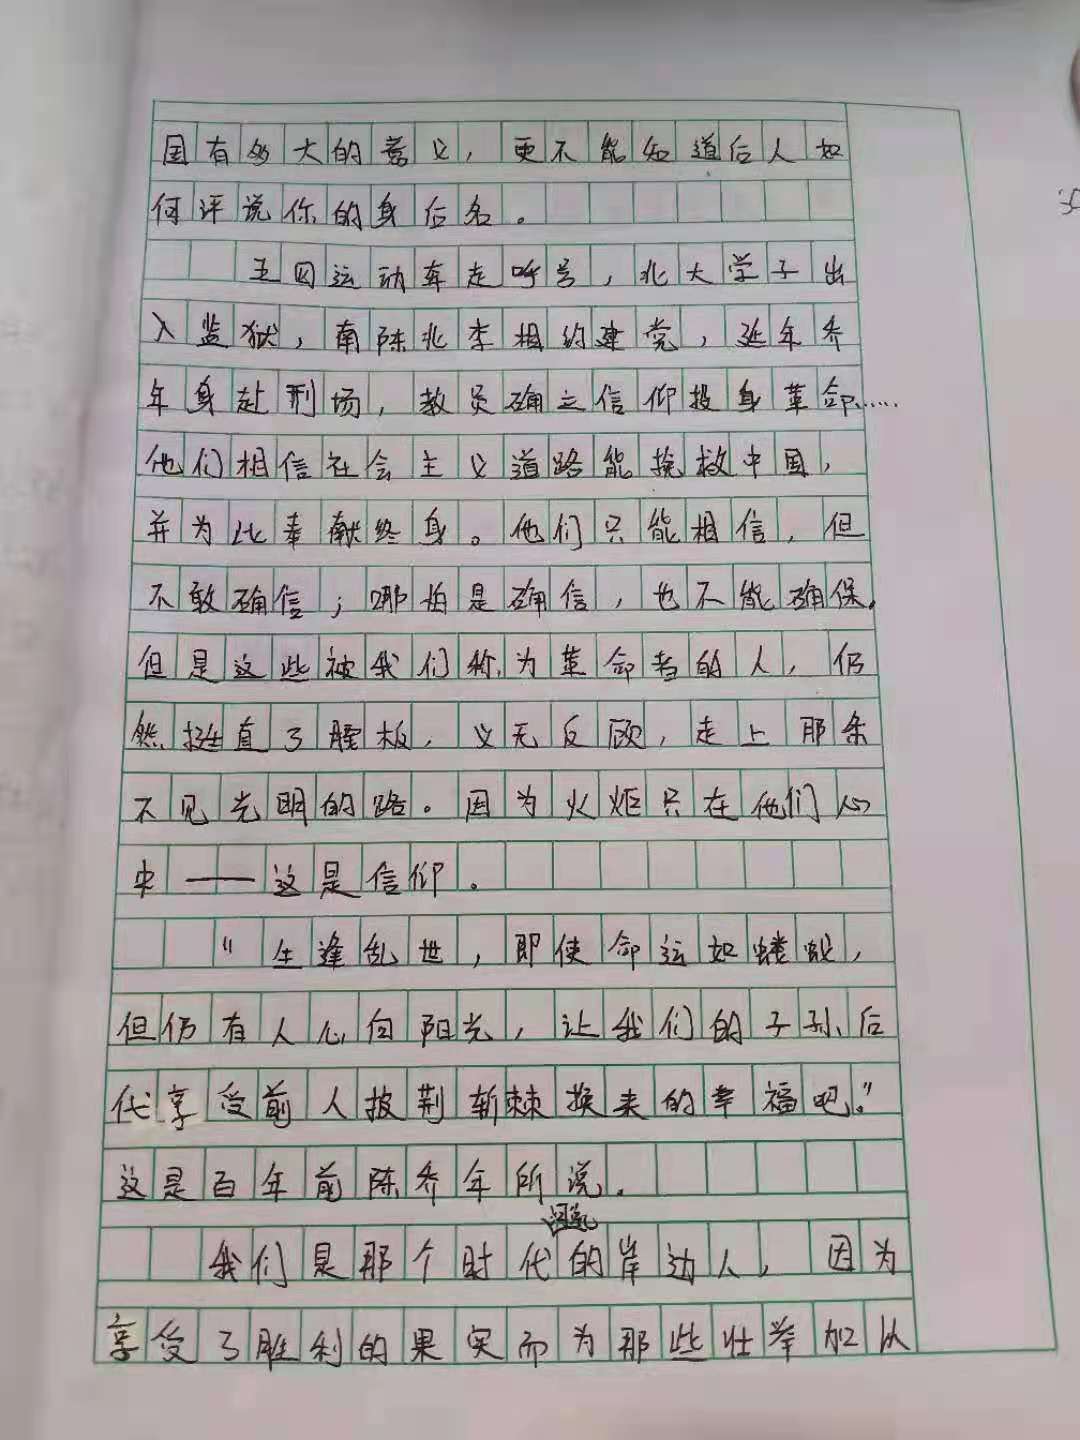 国有多大的意义，更不能知道后人如
何评说你的身后名。
五四运动奔走呼号，北大学子出
入监狱，南陈北李相约建党，延年乔
年身赴刑场，教员确立信仰投身革命……
他们相信社会主义道路能挽救中国，
并为此奉献终身。他们只能相信，但
不敢确信；哪怕是确信，也不能确保。
但是这些被我们称为革命者的人，仍
然挺直了腰板，义无反顾，走上那条
不见光明的路。因为火炬只在他们心
中——这是信仰。
“生逢乱世，即使命运如蝼蚁，
但仍有人心向阳光，让我们的子孙后
代享受前人披荆斩棘换来的幸福吧。”
这是百年前陈乔年所说。
我们是那个时代的岸边人，因为
享受了胜利的果实而为那些壮举加以